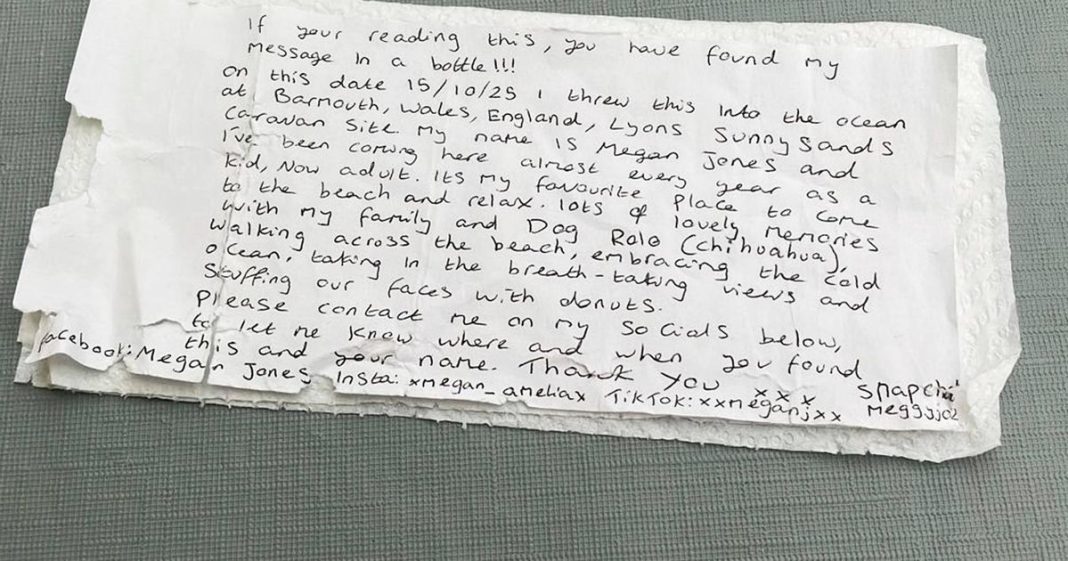 If your reading this, you have found my
Message In a bottle!!!
on this date 15/10/25 I threw this Into the ocean
at Barmouth, Wales, England, Lyons Sunnysands
Caravan Site. My name is Megan Jones and
I've been coming here almost every year as a
kid, Now adult. Its my favourite Place to come
to the beach and relax. lots of lovely memories
With my family and Dog Rolo (chihuahua),
walking across the beach, embracing the cold
ocean, taking in the breath-taking views and
Stuffing our faces with donuts.
Please contact me on my Socials below,
to let me know where and when you found
this and your name. Thank you xxx
Facebook: Megan Jones Insta: xmegan_ameliax TikTok: xxmeganjxx